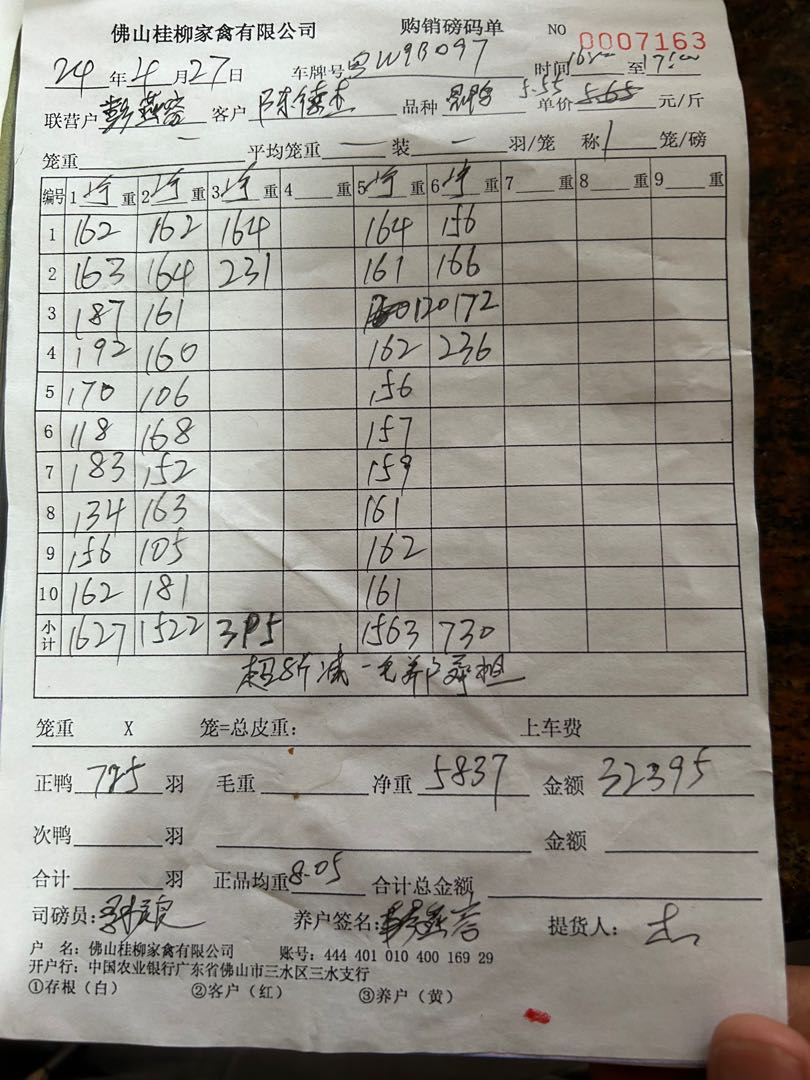 佛山桂柳家禽有限公司 购销磅码单 NO 0007163
24年4月27日 车牌号粤W9B097 时间 至
联营户 客户 陈德杰 品种 5.55 单价5.65元/斤
笼重 — 平均笼重 — 装 — 羽/笼 称 1 笼/磅
编号 1净重 2净重 3净重 4重 5净重 6净重 7重 8重 9重
1 162 162 164 164 156
2 163 164 231 161 166
3 187 161 120 172
4 192 160 162 236
5 170 106 156
6 118 168 157
7 183 152 159
8 134 163 161
9 156 105 162
10 162 181 161
小计 1627 1522 395 1563 730
超8斤减一毛养户承担
笼重 X 笼=总皮重: 上车费
正鸭 725 羽 毛重 净重 5837 金额 32395
次鸭 羽 金额
合计 羽 正品均重 8.05 合计总金额
司磅员: 养户签名: 提货人:
户 名: 佛山桂柳家禽有限公司 账号: 444 401 010 400 169 29
开户行: 中国农业银行广东省佛山市三水区三水支行
①存根(白) ②客户(红) ③养户(黄)